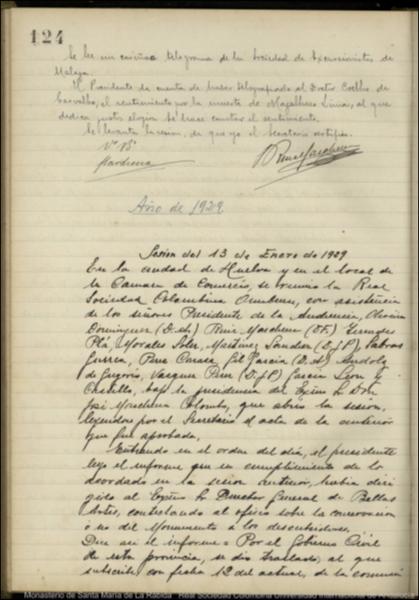 124
Se lee un cariñoso telegrama de la Sociedad de Excursionistas de
Málaga.
El Presidente da cuenta de haber telegrafiado al Doctor Coelho de
Carvalho, el sentimiento por la muerte de Magalhaes Lima, al que
dedica justo elogio. Se hace constar el sentimiento.
Se levanta la sesion, de que yo el Secretario certifico.
Vº Bº
Marchena
Año de 1929
Sesion del 13 de Enero de 1929
En la ciudad de Huelva y en el local de
la Cámara de Comercio, se reunió la Real
Sociedad Colombina Onubense, con asistencia
de los señores Presidente de la Audiencia, Oliveira
Dominguez (D. A.) Ruiz Marchena (D. F.)
Plá, Morales, Martinez Sanchez (D. J. P.)
Garcia (D. A.)
de Gregorio, Vazquez Perez (D. J. P.) Garcia Leon y
Castillo, bajo la presidencia del Excmo Sr. Don
José Marchena Colombo, que abrió la sesion,
leyendose por el Secretario el acta de la anterior
que fue aprobada.
Entrando en el orden del dia, el presidente
leyó el informe que en cumplimiento de lo
acordado en la sesion anterior, habia diri
gido al Excmo Sr. Director General de Bellas
Artes, contestando al oficio sobre la conservacion
o no del Monumento a los descubridores.
Dice asi el informe: Por el Gobierno Civil
de esta provincia, se dió traslado, al que
suscribe, con fecha 12 del actual, de la comuni
Monasterio de Santa María de La Rábida. Real Sociedad Colombina Universidad Internacional de Andalucía